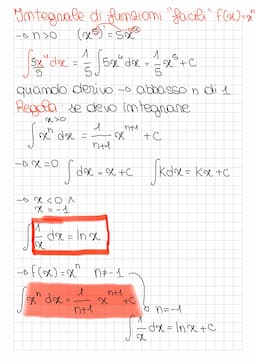 Integrale di funzioni "facili" f(x)=xⁿ
→ n>0 (x⁵)' = 5x⁴
∫ 5x⁴/5 dx = 1/5 ∫ 5x⁴ dx = 1/5 x⁵ + C
quando derivo → abbasso n di 1
Regola: se devo integrare
x>0
∫ xⁿ dx = 1/n+1 xⁿ⁺¹ + C
→ x=0 ∫ dx = x + C ∫ kdx = kx + C
→ x<0 ∧
x=-1
∫ 1/x dx = ln x
→ f(x)=xⁿ n≠-1
∫ xⁿ dx = 1/n+1 xⁿ⁺¹ + C
n=-1
∫ 1/x dx = ln x + C